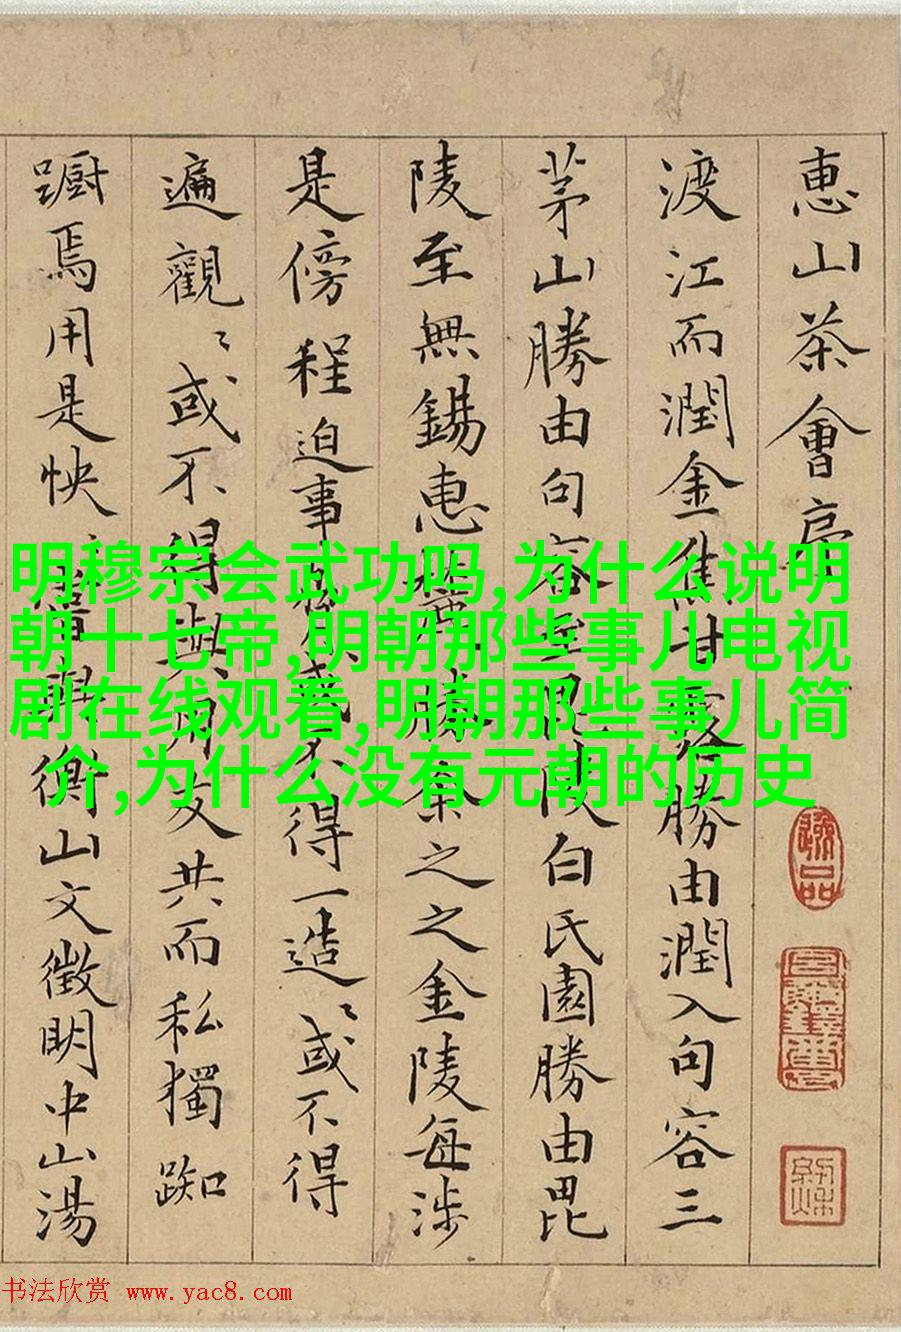 惠山茶會序
渡江而潤金焦甘露勝由潤入句容三
茅山勝由句容至毘陵白氏園勝由毘
陵至無錫惠麓勝余之之金陵每涉
是傍程迫事不得一造〻或不得
遍觀〻或不得與友共而私獨踟
蹰焉用是怏〻嘗與衡山文徵明中山湯
明穆宗会武功吗,为什么说明
朝十七帝,明朝那些事儿电视
剧在线观看,明朝那些事儿简
介,为什么没有元朝的历史
书法欣赏 www.yac8.com